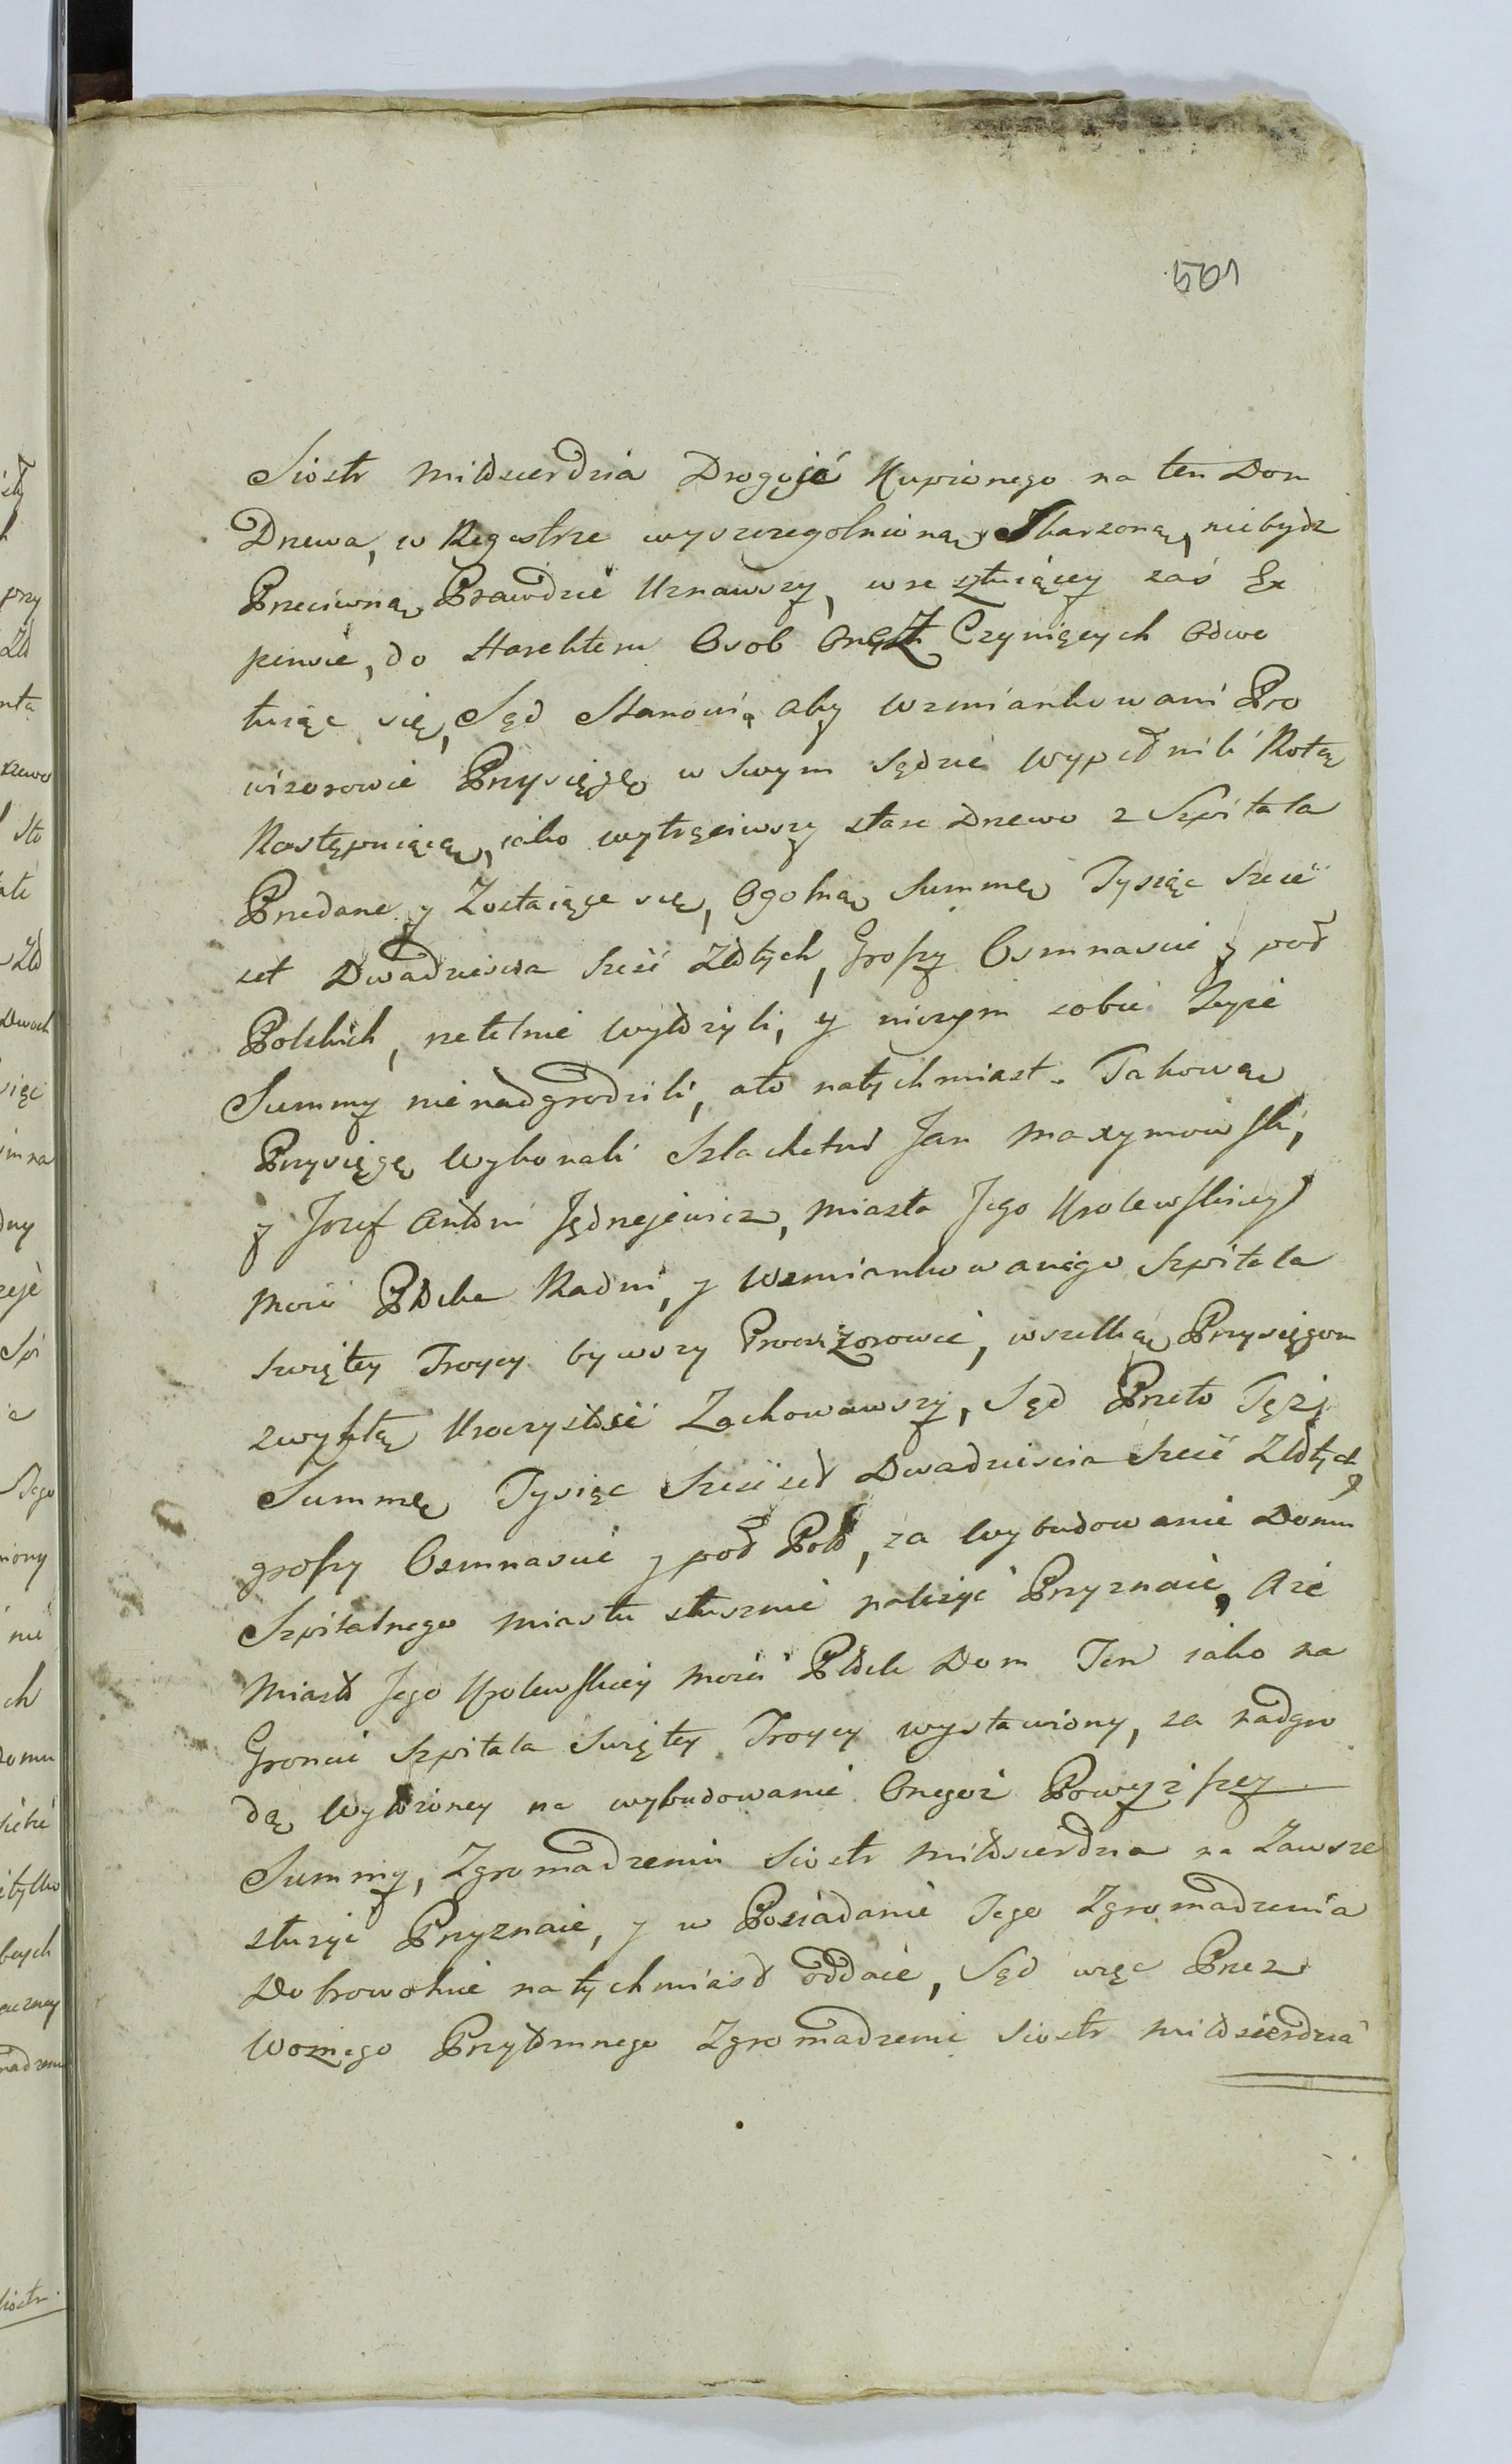 501
Siostr miłosierdzia Drogość Kupionego na ten Dom
Drzewa, w Regestrze wyszczegolnioną y Skarżoną, niebydz
Przeciwną Prawdzie Uznawszy, w resztuiącey zaś Ex
pensie, do Osob Onęż Czyniących Odwo
łuiąc się, Sąd Stanowi, aby wzmiankowani Pro
wizorowie Przysięgę w Swym Sądzie wypełnili Rotą
Następuiącą, iako wytrąciwszy stare Drzewo z Szpitala
Przedane y Zostaiące się, Ogolną Summę Tysiąc Sześć
set Dwadzieścia Sześć Złotych, Groszy Osmnascie y poł
Polskich, rzetelnie wyłożyli, y niczym sobie Teyże
Summy nienadgrodzili, ato natychmiast. Takową
Przysięgę wykonali Szlachetni Jan Maxymowski,
y Jozef Antoni Jędrzejewicz, miasta Jego Krolewskiey
Mości Płocka Radni, y Wzmiankowanego Szpitala
Swiętey Troycy bywszy Prowizorowie, wszelką Przysięgom
zwykłą Uroczystość Zachowawszy, Sąd Przeto Tęż
Summę Tysiąc Sześćset Dwadzieścia Sześć Złotych
groszy Osmnascie y poł Pols, za wybudowanie Domu
Szpitalnego miastu słusznie należeć Przyznaie, Aże
Miasto Jego Krolewskiey Mości Płock Dom Ten iako na
Groncie Szpitala Swiętey Troycy wystawiony, za nadgro
dą wyłożoney na wybudowanie Onegoż Powyższey
Summy, Zgromadzeniu Siostr miłosierdzia na Zawsze
służyć Przyznaie, y w Posiadanie Tego Zgromadzenia
Dobrowolnie natychmiast oddaie, Sąd więc Przez
Woznego Przytomnego Zgromadzenie Siostr miłosierdzia